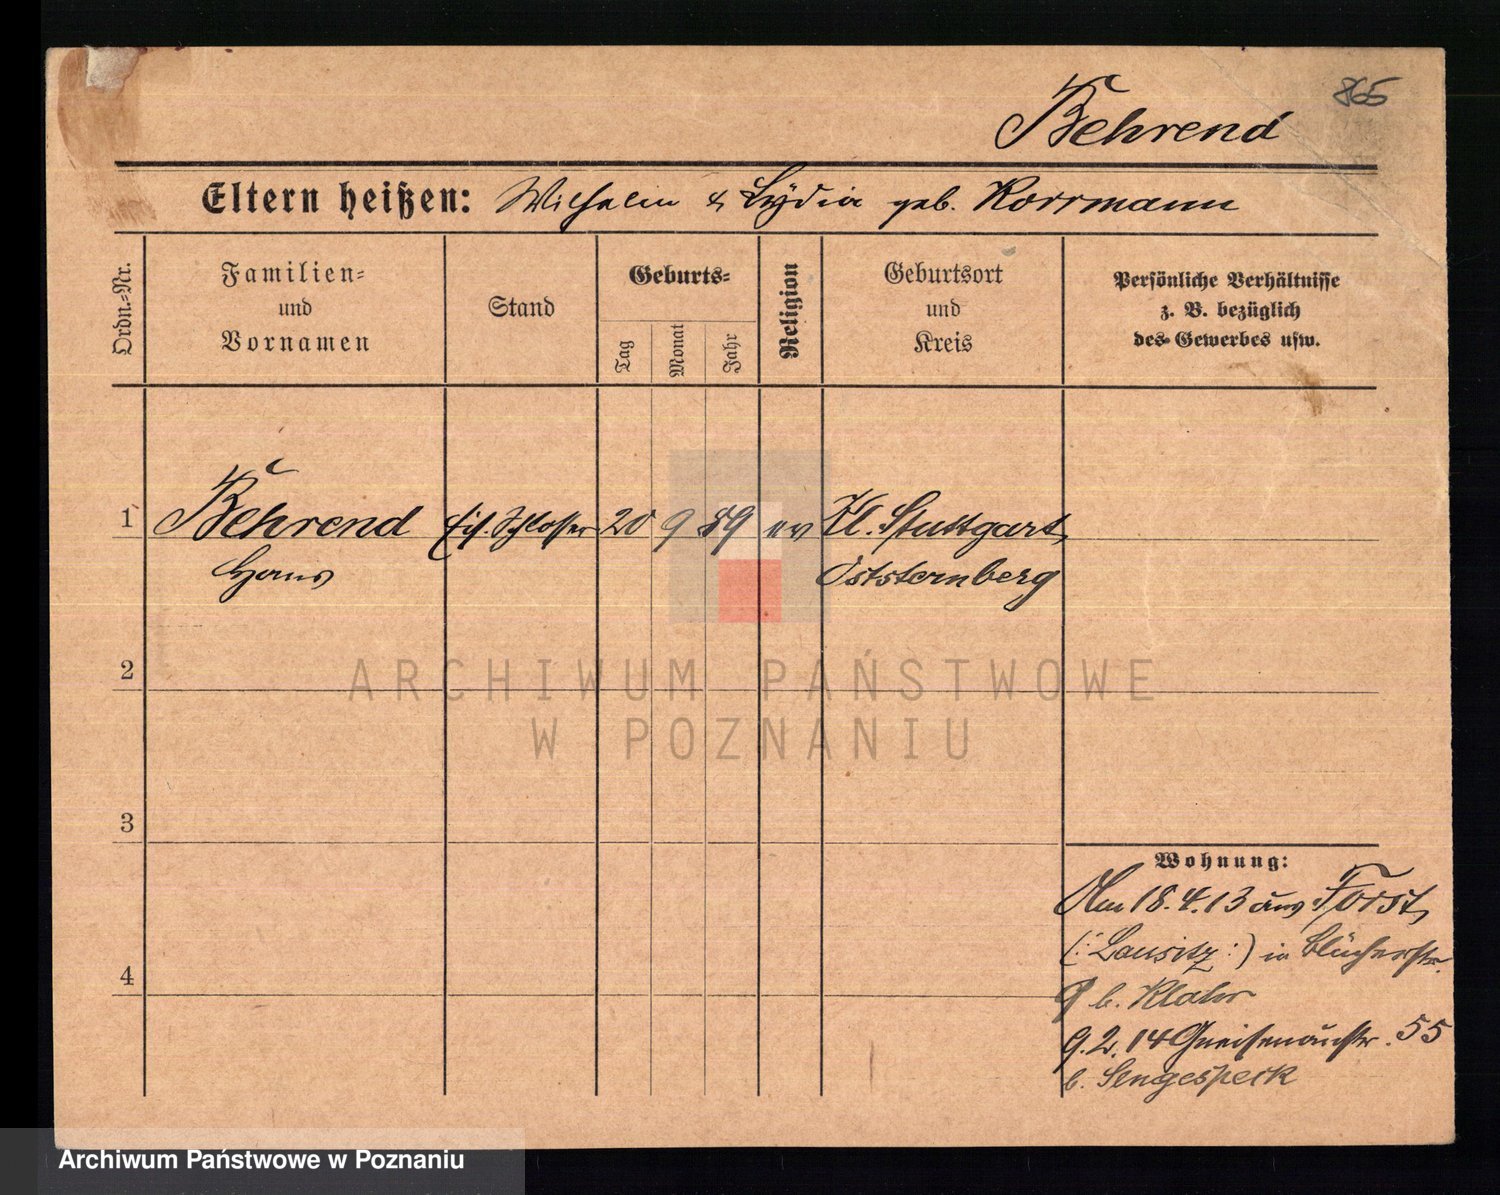 865
Behrend
Eltern heißen: Wilhelm & Lydia geb. Korrmann
Ordn.-Nr.
Familien-
und
Vornamen
Stand
Geburts-
Tag
Monat
Jahr
Religion
Geburtsort
und
Kreis
Persönliche Verhältnisse
z. B. bezüglich
des Gewerbes usw.
1 Behrend Eis. Schlosser 20 9 89 ev Kl. Stuttgart,
Hans Oststernberg
2
ARCHIWUM PAŃSTWOWE
W POZNANIU
3
4
Wohnung:
Am 18.4.13 aus Forst,
(: Lausitz :) in Blücherstr.
9 b. Klahr
9.2.14 Gneisenaustr. 55
b. Sengespeck
Archiwum Państwowe w Poznaniu